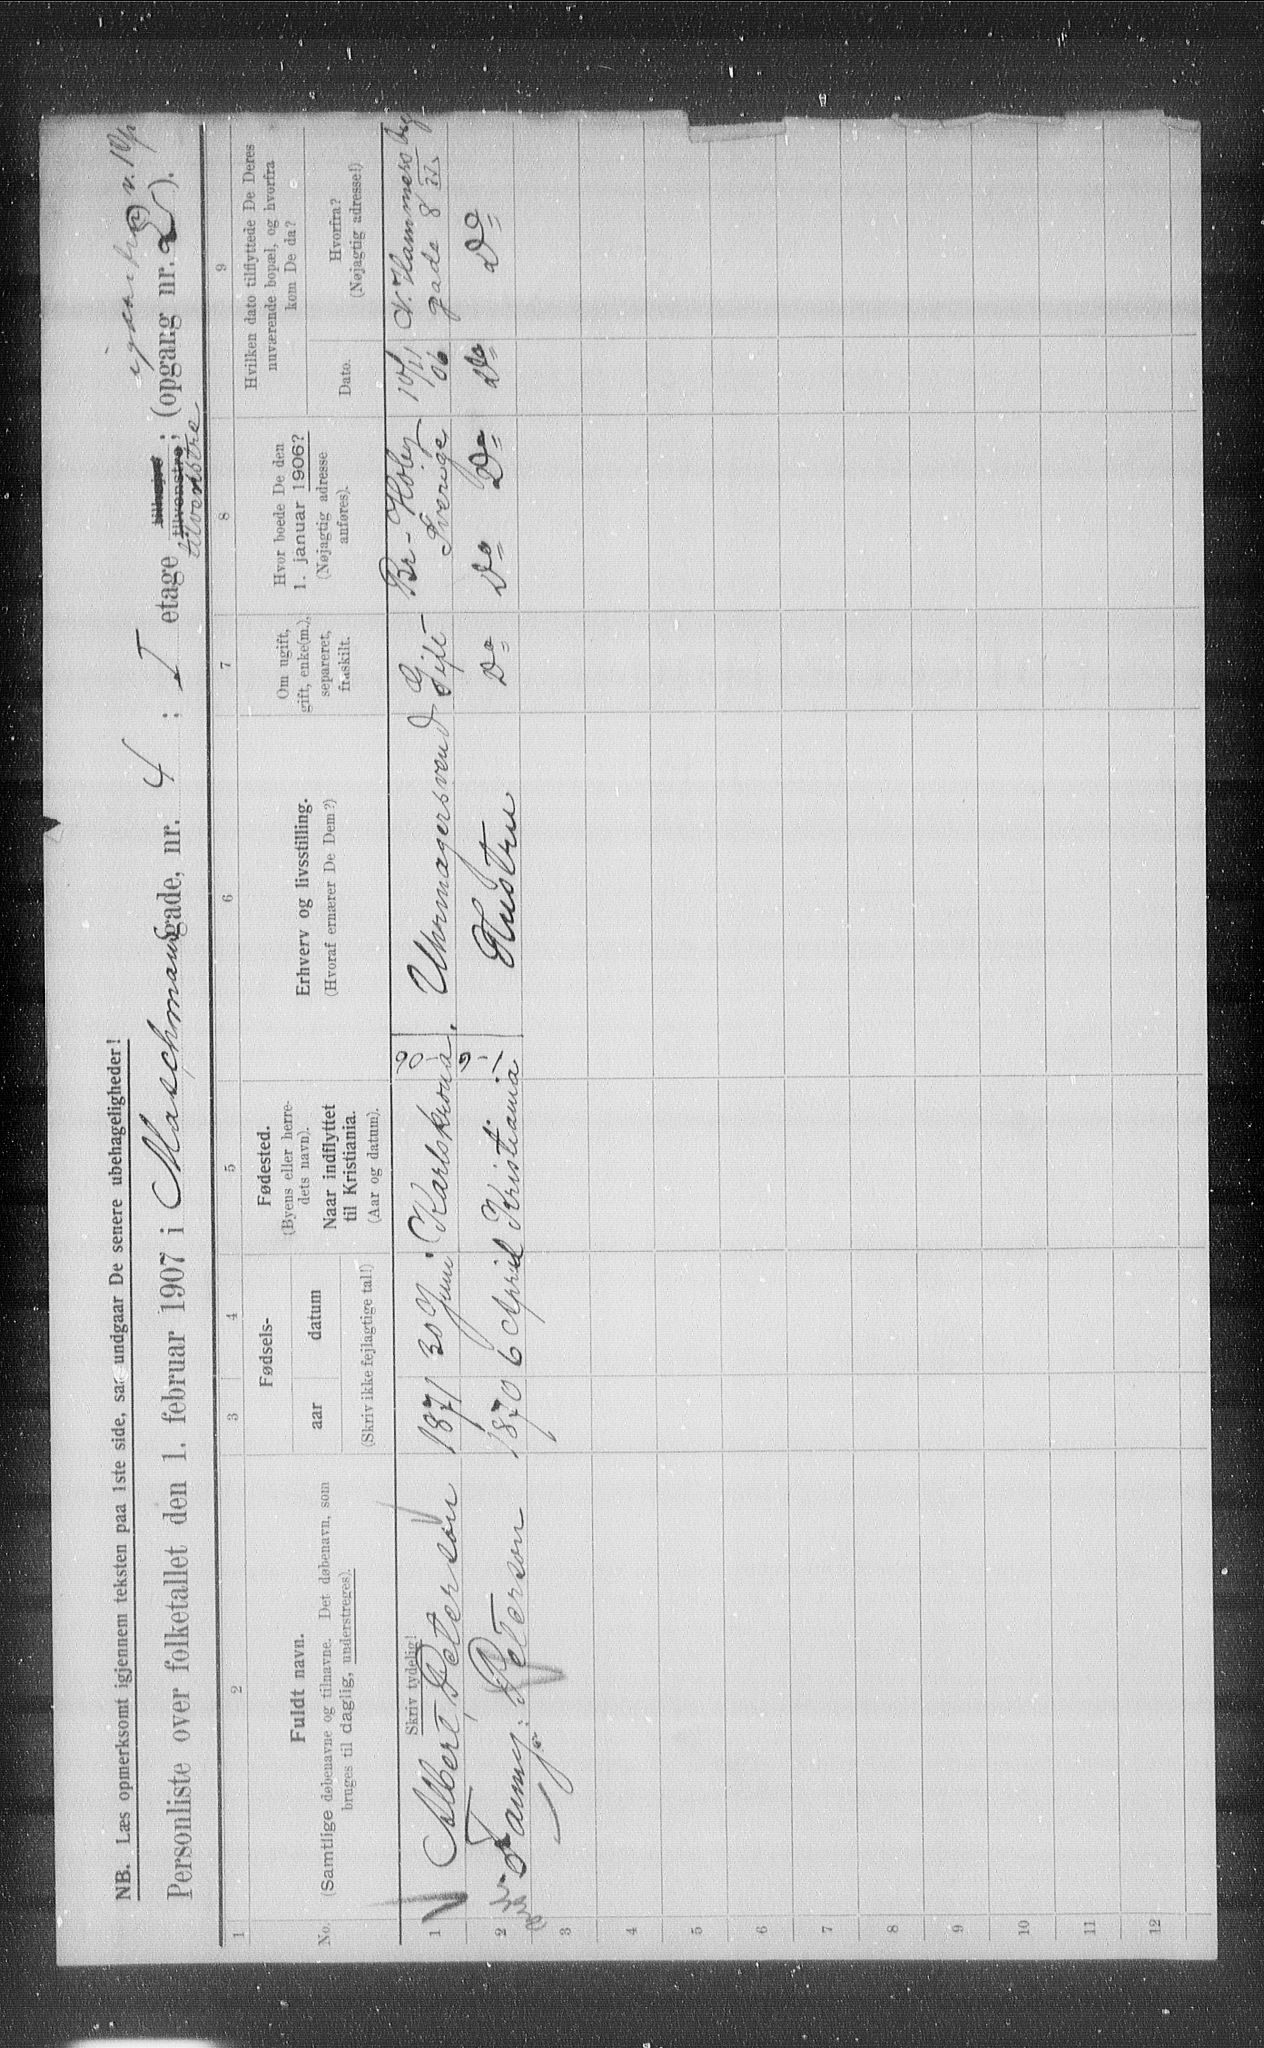 NB. Læs opmerksomt igjennem teksten paa 1ste side, saa undgaar De senere ubehageligheder!
Personliste over folketallet den 1. februar 1907 i Maschmansgade, nr. 4 ; I etage tilhøjre tilvenstre; (opgang nr. 2).
tilvenstre
1 2 3 4 5 6 7 8 9
No.
Fuldt navn.
(Samtlige døbenavne og tilnavne. Det døbenavn, som
bruges til daglig, understreges).
Fødsels-
aar datum
(Skriv ikke fejlagtige tal!)
Fødested.
(Byens eller herre-
dets navn).
Naar indflyttet
til Kristiania.
(Aar og datum).
Erhverv og livsstilling.
(Hvoraf ernærer De Dem?)
Om ugift,
gift, enke(m.),
separeret,
fraskilt.
Hvor boede De den
1. januar 1906?
(Nøjagtig adresse
anføres).
Hvilken dato tilflyttede De Deres
nuværende bopæl, og hvorfra
kom De da?
Dato.
Hvorfra?
(Nøjagtig adresse!)
Skriv tydelig!
1 Albert Peterson 1871 30 Juni Karlskrona Uhrmagersvend Gift Br-Hoby Sverige 10/11 06 N. Hammersbg gade 8
2 Fanny Peterson 1870 6 April Kristiania Hustru Do Do Do Do Do
3
4
5
6
7
8
9
10
11
12